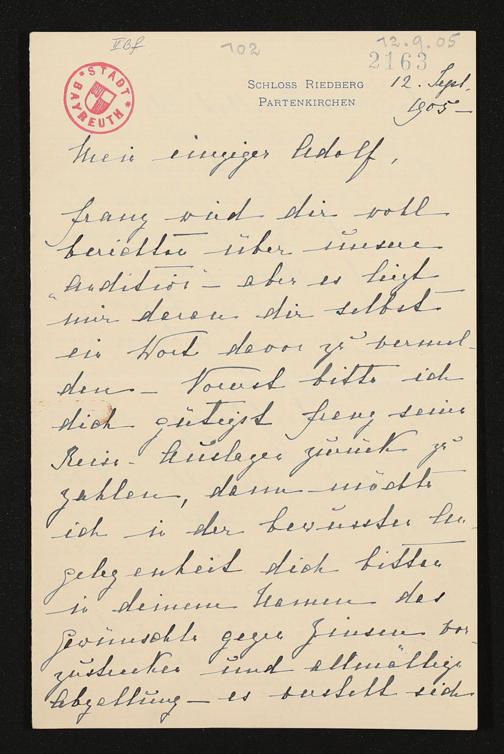 II Bf
102
12.9.05
2163
STADT BAYREUTH
SCHLOSS RIEDBERG
PARTENKIRCHEN
12. Sept.
1905 –
Mein einziger Adolf,
franz wird dir wohl
berichten über unsere
"Audition" – aber es liegt
mir daran dir selbst
ein Wort davon zu vermel-
den – Vorerst bitte ich
dich gütigst franz seine
Reise-Auslagen zurück zu
zahlen, dann möchte
ich in der bewussten An-
gelegenheit dich bitten
in deinem Namen das
Gewünschte gegen Zinsen vor-
zustrecken und allmälige
Abzallung – es versteht sich